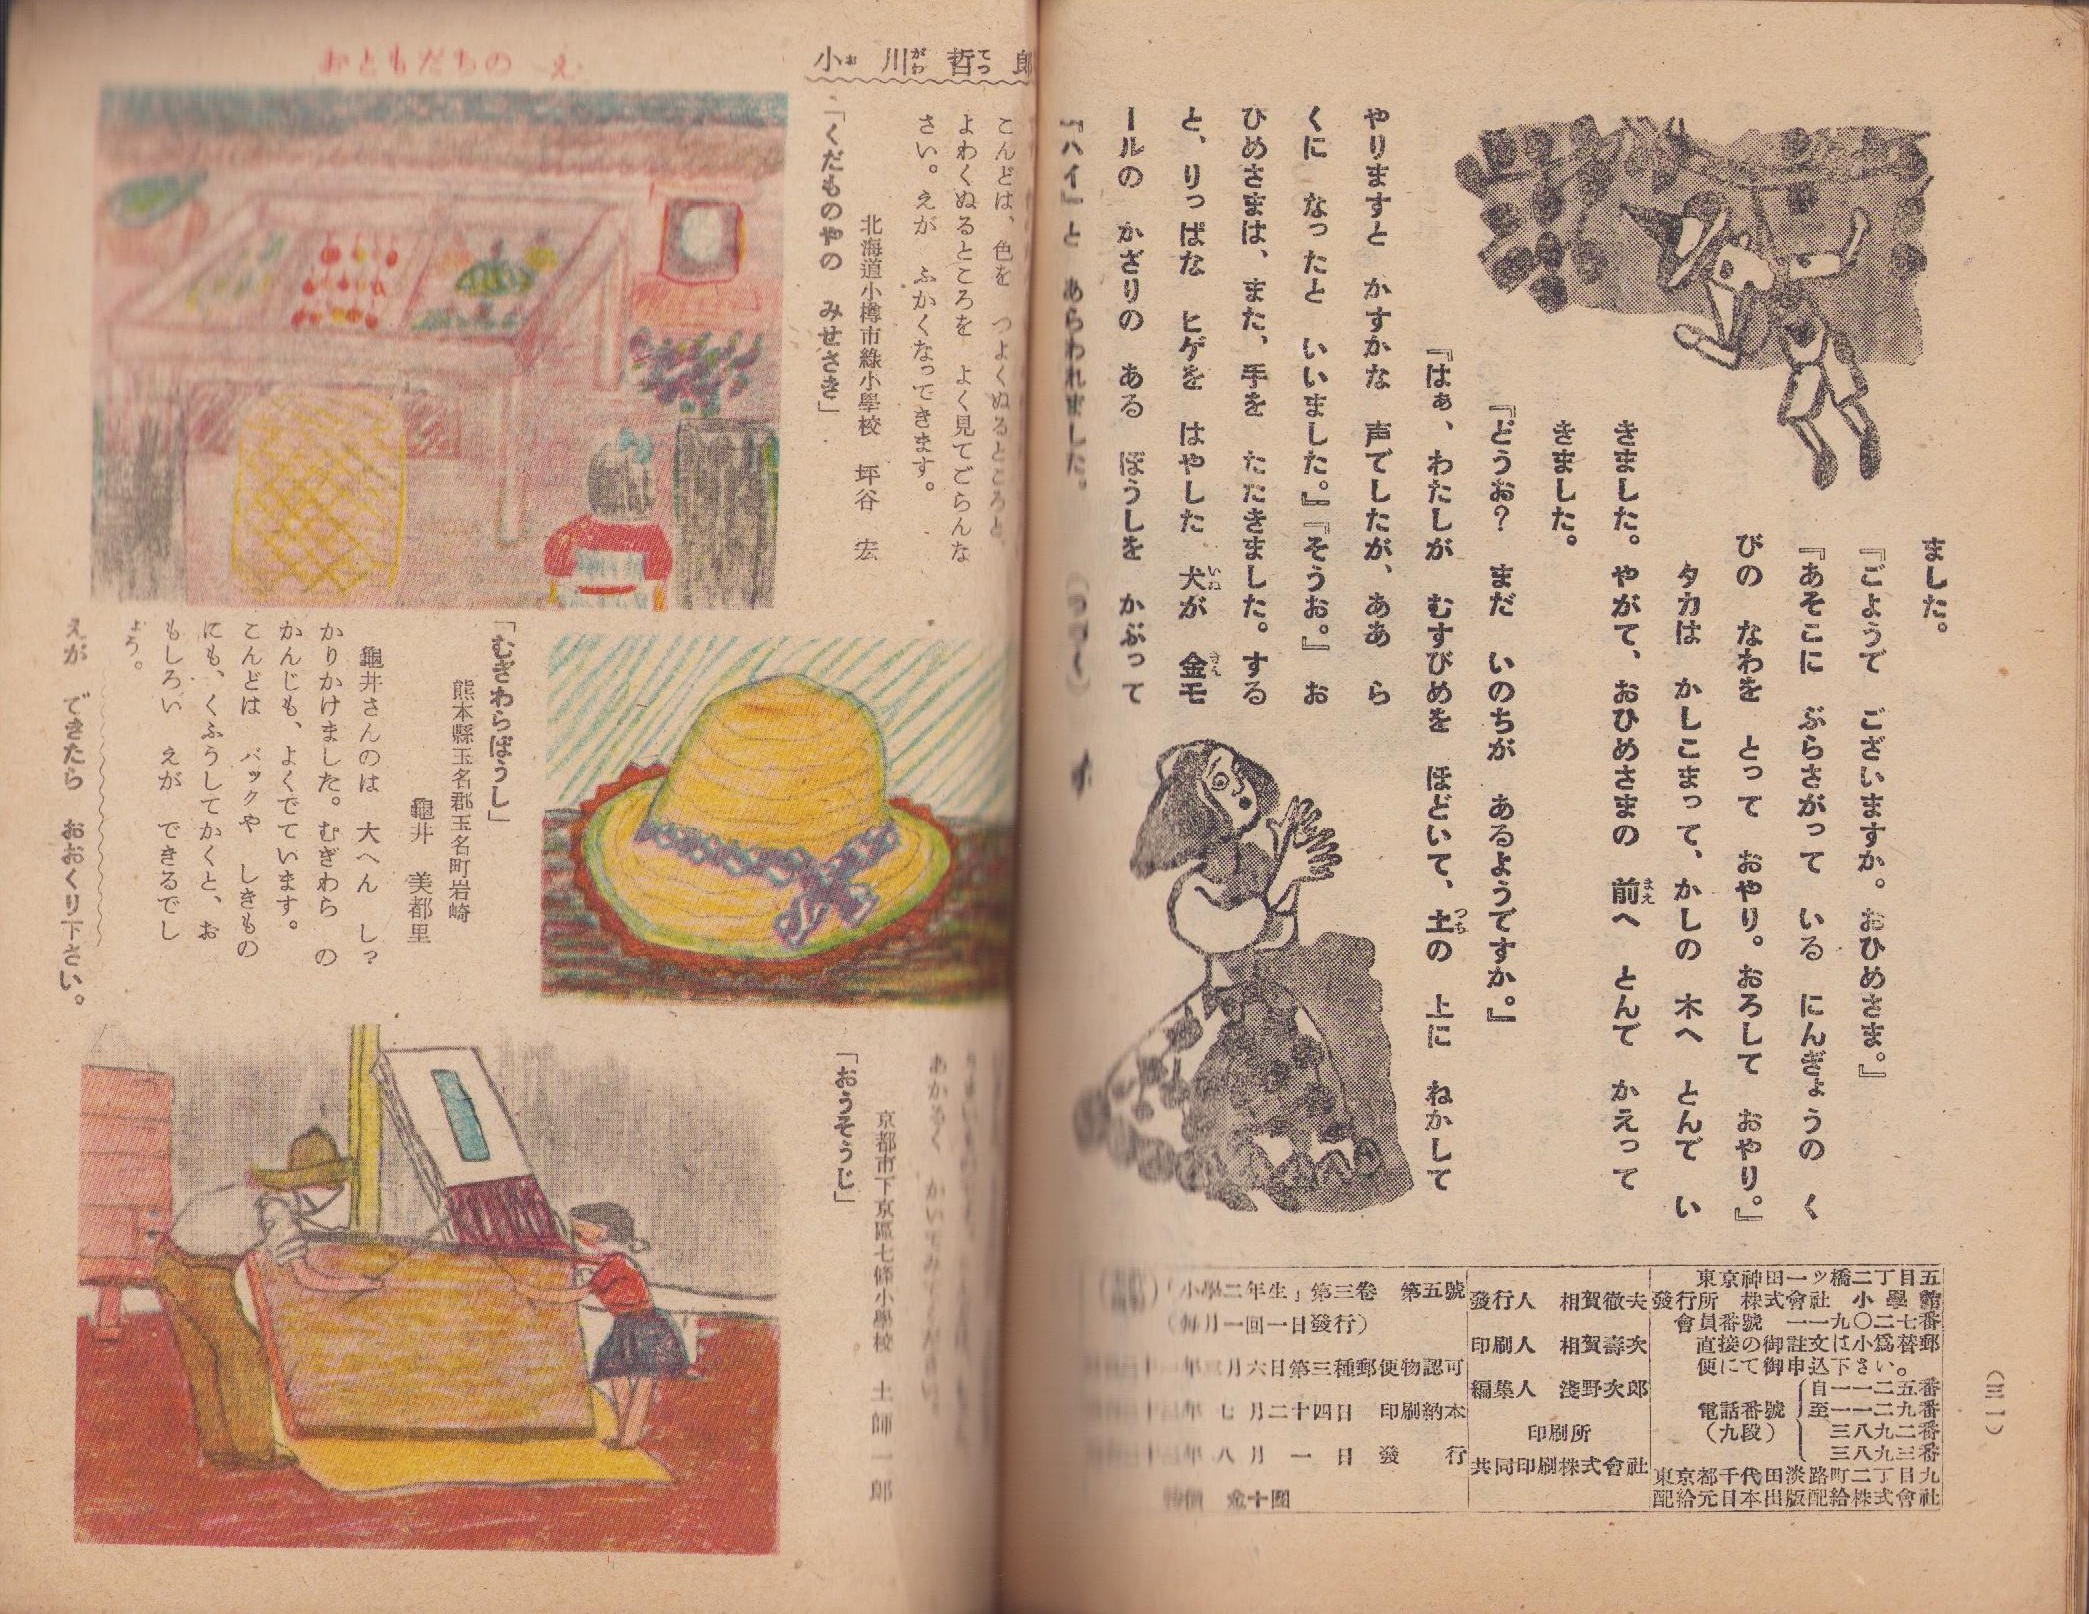 ました。
『ごようで ございますか。おひめさま。』
『あそこに ぶらさがって いる にんぎょうの く
びの なわを とって おやり。おろして おやり。』
タカは かしこまって、かしの 木へ とんで い
きました。やがて、おひめさまの 前へ とんで かえって
きました。
『どうお? まだ いのちが あるようですか。』
『はぁ、わたしが むすびめを ほどいて、土の 上に ねかして
やりますと かすかな 声でしたが、ああ ら
くに なったと いいました。』『そうお。』 お
ひめさまは、また、手を たたきました。する
と、りっぱな ヒゲを はやした 犬が 金モ
ールの かざりの ある ぼうしを かぶって
『ハイ』と あらわれました。
(三一)
東京神田一ッ橋二丁目五
發行所 株式會社 小學館
會員番號 一一九〇二七番
直接の御註文は小爲替郵
便にて御申込下さい。
電話番號
(九段)
自一一二五番
至一一二九番
三八九二番
三八九三番
東京都千代田淡路町二丁目九
配給元日本出版配給株式會社
發行人 相賀徹夫
印刷人 相賀壽次
編集人 淺野次郎
印刷所
共同印刷株式會社
「小學二年生」第三卷 第五號
(毎月一回一日發行)
月六日第三種郵便物認可
年 七月二十四日 印刷納本
年 八月一日 發行
金十圓
おともだちの え
小川哲郎
こんどは、色を つよくぬるところと、
よわくぬるところを よく見てごらんな
さい。えが ふかくなってきます。
北海道小樽市綠小學校 坪谷 宏
「くだものやの みせさき」
「むぎわらぼうし」
熊本縣玉名郡玉名町岩崎
龜井 美都里
龜井さんのは 大へん し?
かりかけました。むぎわら の
かんじも、よくでています。
こんどは バックや しきもの
にも、くふうしてかくと、お
もしろい えが できるでし
ょう。
えが できたら おおくり下さい。
あかるく かいてみてください。
京都市下京區七條小學校 土師一郎
「おうそうじ」